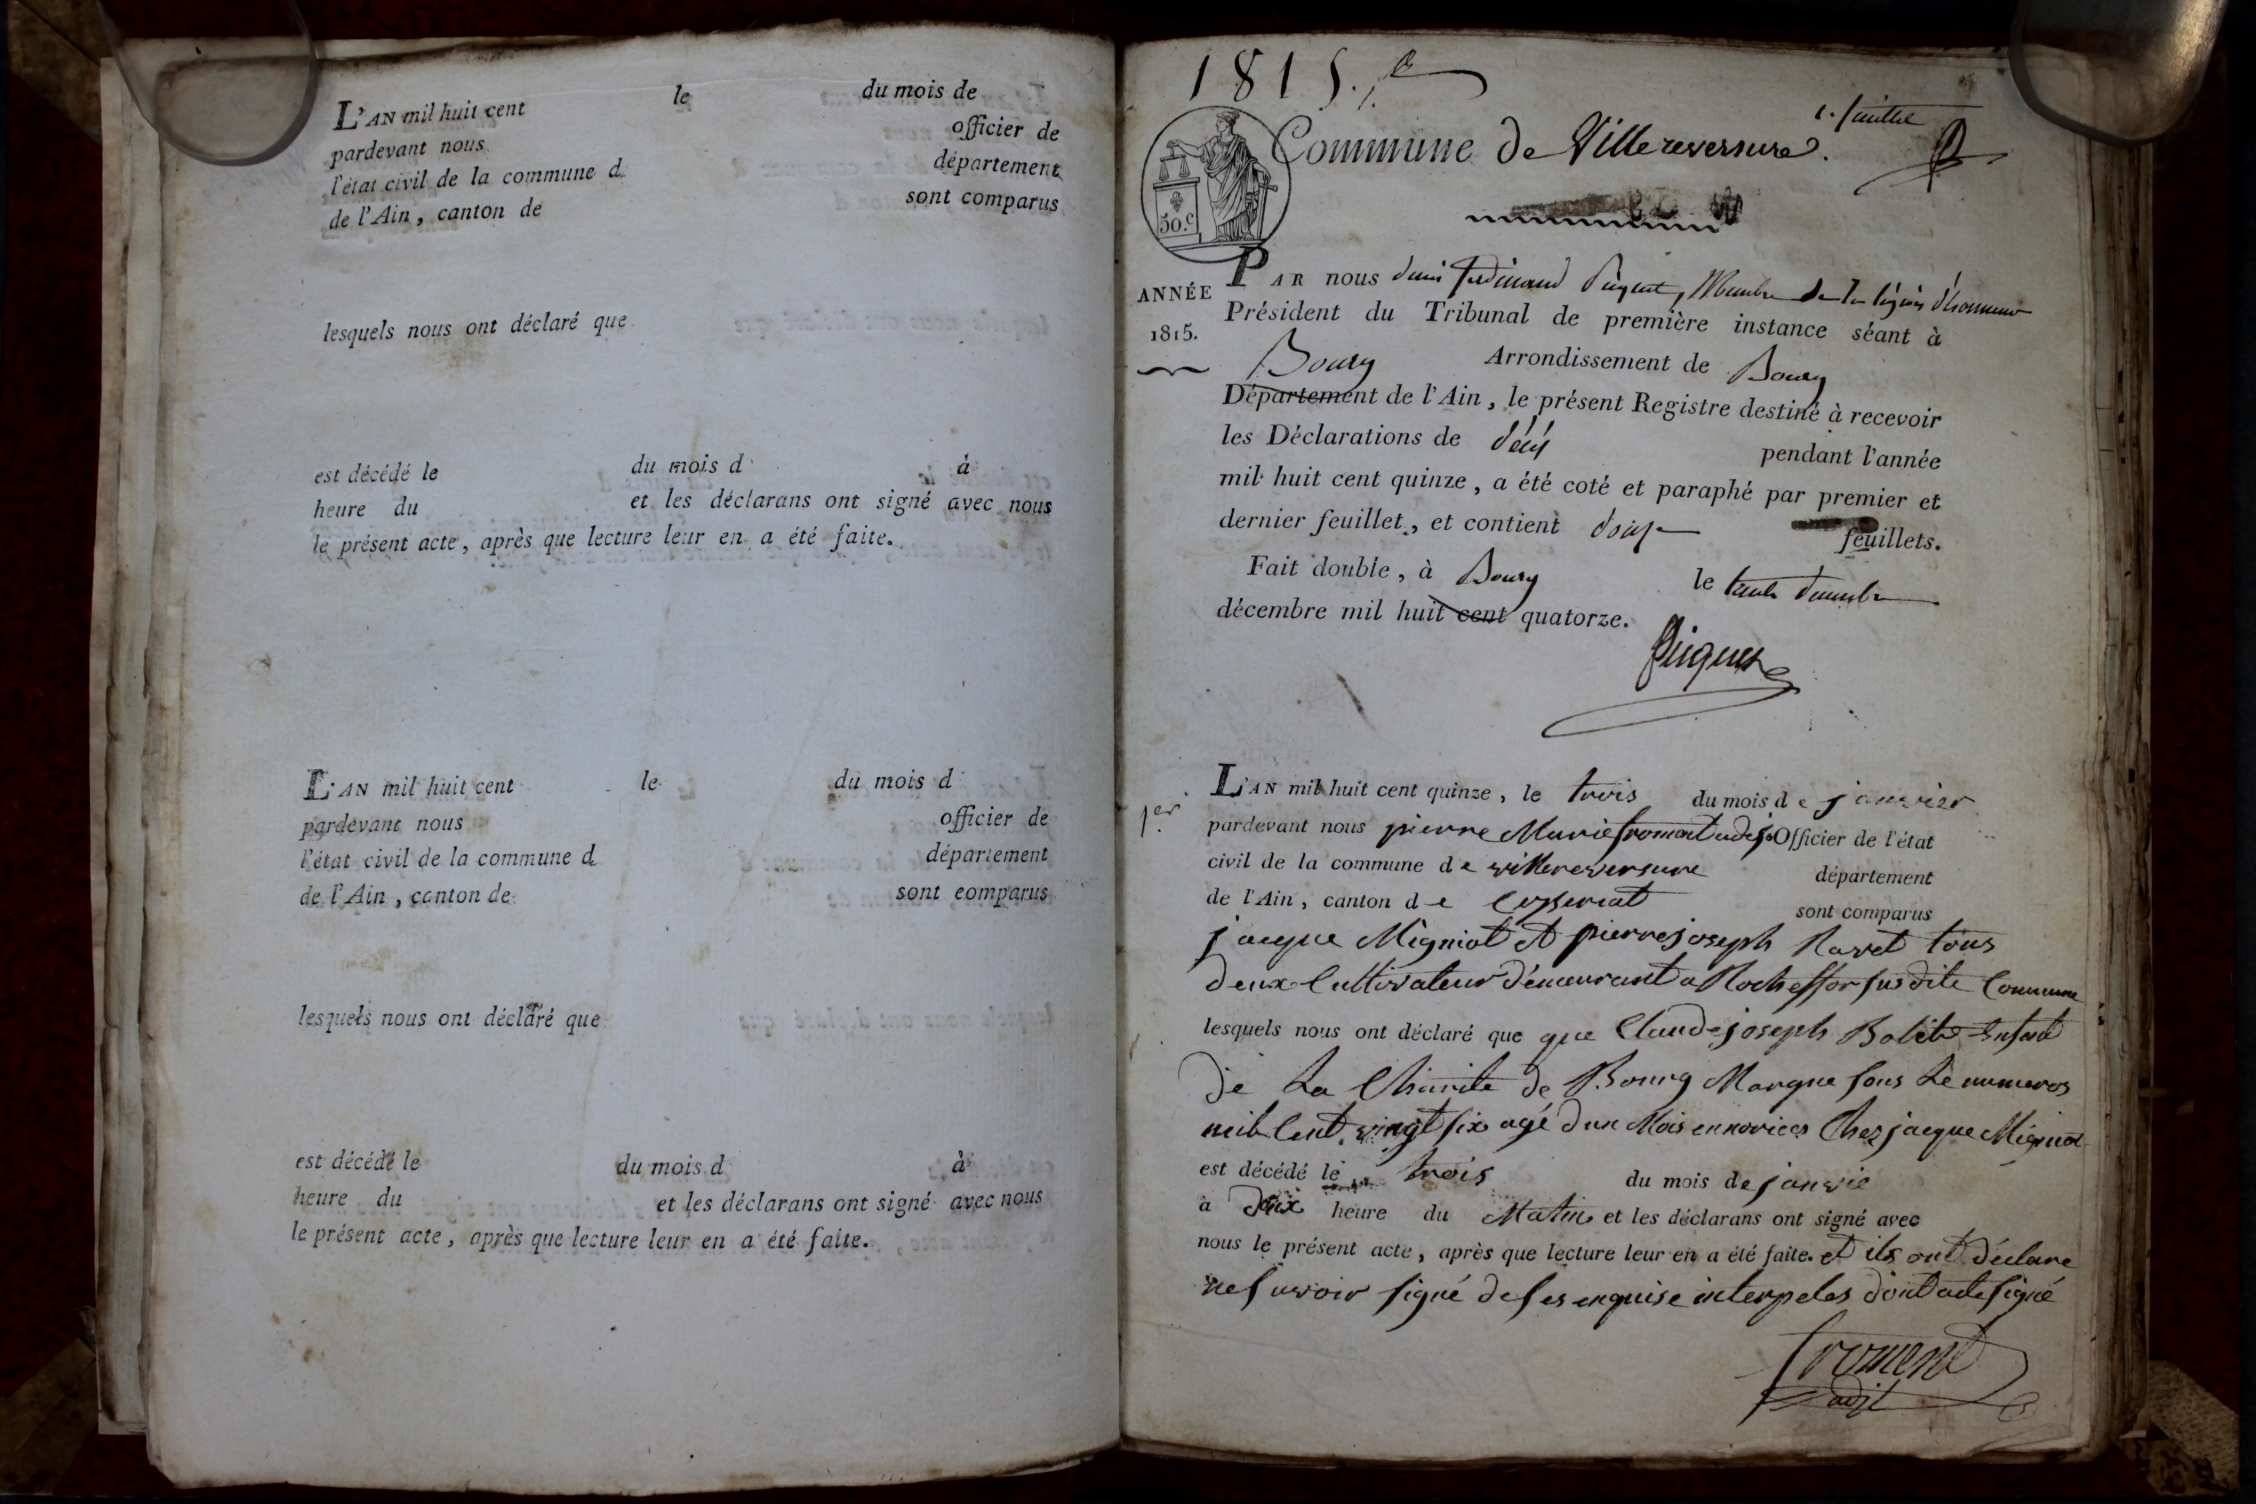 L'AN mil huit cent le du mois de
pardevant nous officier de
l'état civil de la commune d département
de l'Ain, canton de sont comparus
lesquels nous ont déclaré que
est décédé le du mois d à
heure du et les déclarans ont signé avec nous
le présent acte, après que lecture leur en a été faite.
L'AN mil huit cent le du mois d
pardevant nous officier de
l'état civil de la commune d département
de l'Ain, canton de sont comparus
lesquels nous ont déclaré que
est décédé le du mois d à
heure du et les déclarans ont signé avec nous
le présent acte, après que lecture leur en a été faite.
1815.
1.
Commune de Villereversure.
50.c
ANNÉE
1815.
PAR nous ferdinand Membre de la légion d'honneur
Président du Tribunal de première instance séant à
Bourg Arrondissement de Bourg
Département de l'Ain, le présent Registre destiné à recevoir
les Déclarations de décés pendant l'année
mil huit cent quinze, a été coté et paraphé par premier et
dernier feuillet, et contient douze feuillets.
Fait double, à Bourg le trente
décembre mil huit cent quatorze.
1er
L'AN mil huit cent quinze, le trois du mois de janvier
pardevant nous pierre Marie froment adjt Officier de l'état
civil de la commune de villereversure département
de l'Ain, canton de Ceyseriat sont comparus
jacque Migniot et pierre joseph Ravet tous
deux Cultivateur démeurant a Rocheffor susdite Commune
lesquels nous ont déclaré que que Claude joseph enfant
dé La Charite de Bourg Marque sous Le numeros
mil Cent vingt six agé dun Mois ennorices Chez jacque Migniot
est décédé le trois du mois de janvie
à heure du Matin et les déclarans ont signé avec
nous le présent acte, après que lecture leur en a été faite. et ils ont déclare
ne savoir signé de ses enquise interpeles dont acte signé
froment
adjt